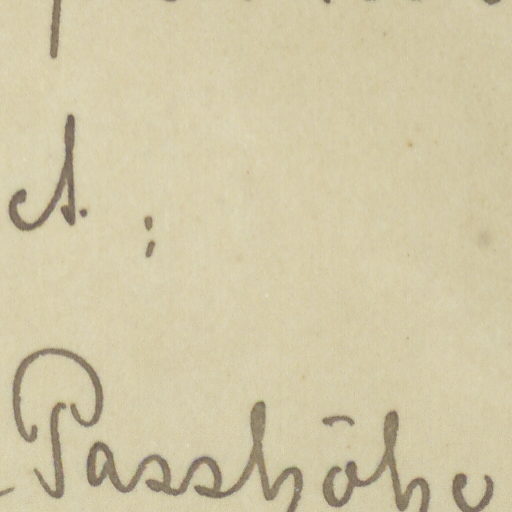 A. ;
Passhöhe